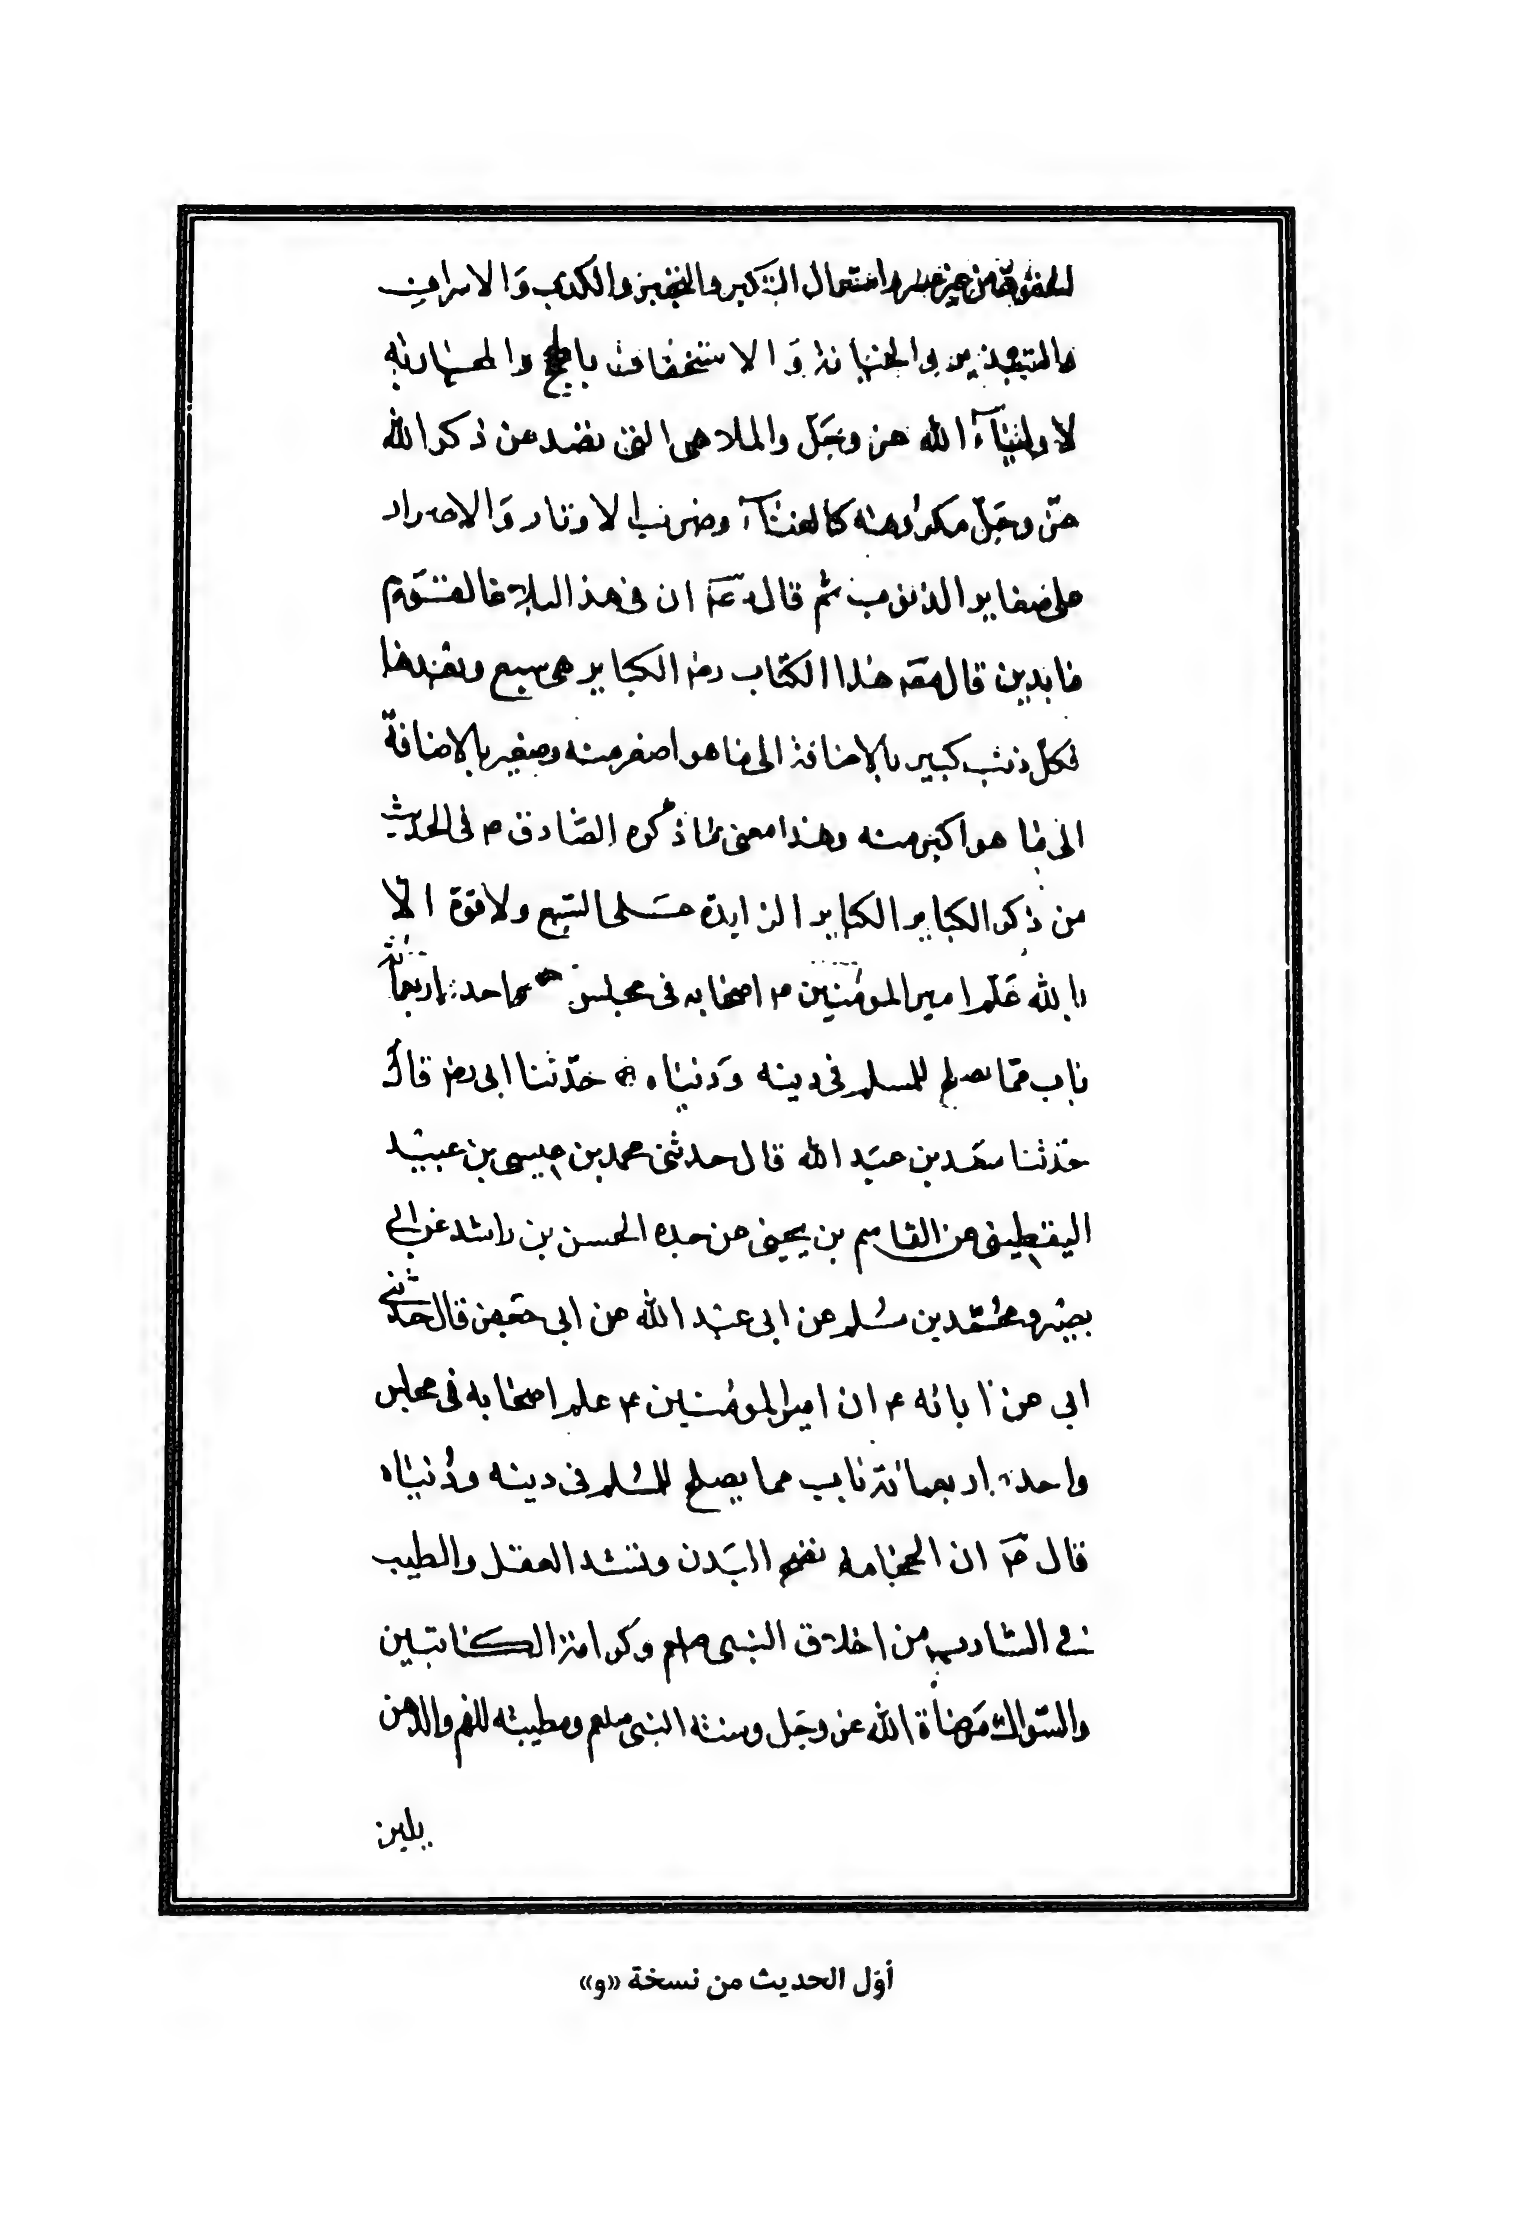 الحقوق من غير عسر واستعمال التكبر والتجبر والكذب وَالاسراف
والتبذير والخيانة وَالاستخفاف بالحج والمحاربه
لاولياۤء الله عز وجَلّ والملاهى التى تصد عن ذكر الله
عزّ وجَلّ مكروهه كالغناۤء وضرب الاوتار وَالاصرار
على صغاير الذنوب ثم قال عۤم ان فى هذا لبلاغا لقَوم
عابدين قال مصَنف هذا الكتاب رض الكباير هى سبع وبعدها
فكلّ ذنب كبير بالاضافة الى ما هو اصغر منه وصغير بالاضافةّ
الى ما هو اكبر منه وهذا معنى ما ذكره الصّادق ع فى الحديث
من ذكر الكباير الكباير الزايدة عَلى السّبع ولا قوّة الّا
بالله عَلّم امير المومٔنين ع اصحابه فى مجلس واحد اربعمائة
باب ممّا يصلح للمسلم فى دينه وَدنياه حدّثنا ابى رض قال
حدّثنا سعَد بن عبَد الله قال حدثنى محمد بن عيسى بن عبيد
اليقطينى عن القاسم بن يحيى عن جده الحسن بن راشد عن ابى
بصير ومحُمّد بن مسُلم عن ابى عبد الله عن ابى جعَفر قال حدثنى
ابى عن آبائه ع ان امير المومٔنين ع علم اصحابه فى مجلس
واحد اربعمائة باب مما يصلح للمسُلم فى دينه ودُنياه
قال عۤ ان الحجامه تصح البَدن وتشد العقل والطيب
فى الشارب من اخلاق النبى صلعم وكرامة الكاتبين
والسّواك مَرضاة الله عز وجَل وسنة النبى صلعم ومطيبة للفم والدهن
يلين
أوّل الحديث من نسخة «و»